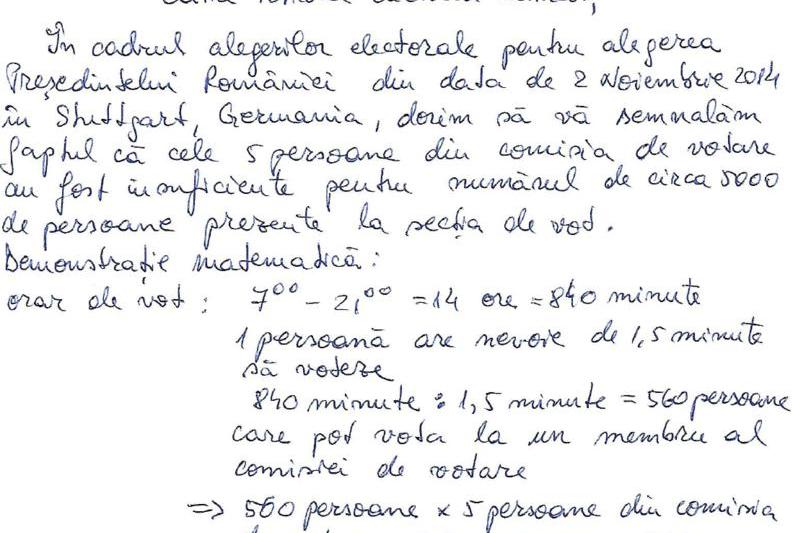 În cadrul alegerilor electorale pentru alegerea
Președintelui României din data de 2 Noiembrie 2014
în Stuttgart, Germania, dorim să vă semnalăm
faptul că cele 5 persoane din comisia de votare
au fost insuficiente pentru numărul de circa 5000
de persoane prezente la secția de vot.
Demonstrație matematică:
orar de vot : 7⁰⁰ - 21⁰⁰ = 14 ore = 840 minute
1 persoană are nevoie de 1,5 minute
să voteze
840 minute : 1,5 minute = 560 persoane
care pot vota la un membru al
comisiei de votare
=> 560 persoane x 5 persoane din comisia